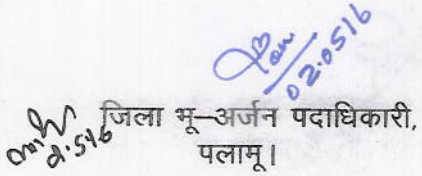 02.05.16
2.5.16
जिला भू–अर्जन पदाधिकारी,
पलामू।